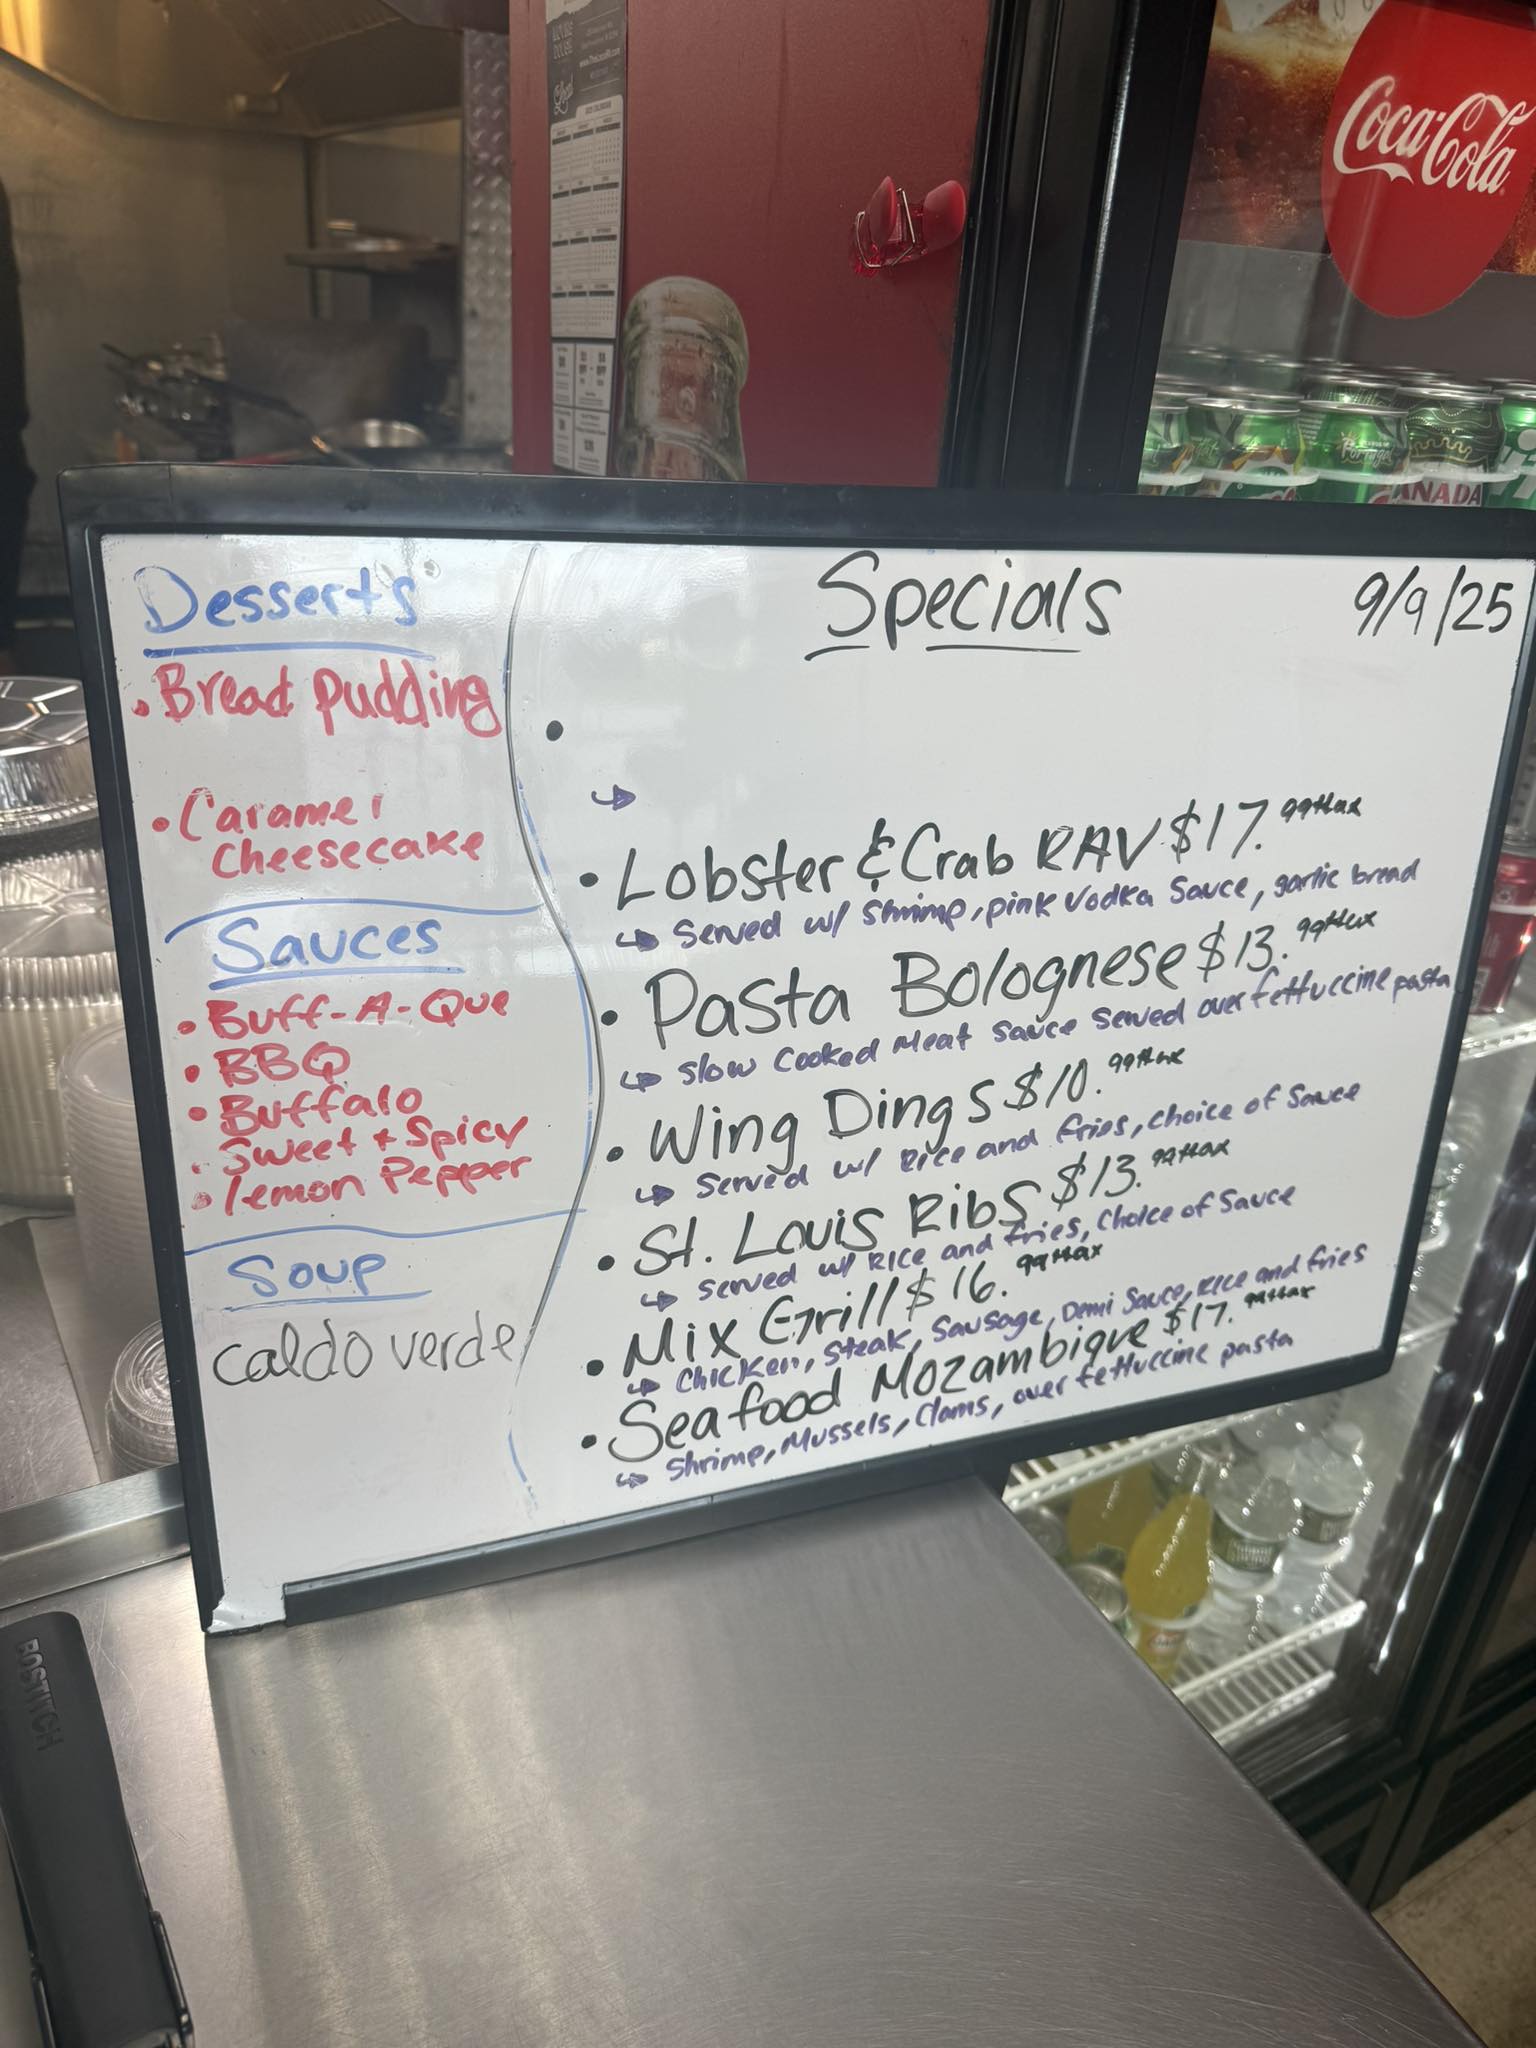 Coca-Cola
Local
CANADA
Desserts
• Bread Pudding
• Caramel
Cheesecake
Sauces
• Buff-A-Que
• BBQ
• Buffalo
• Sweet + Spicy
• lemon Pepper
Soup
Caldo verde
Specials
9/9/25
•
↪
• Lobster & Crab RAV $17.99+tax
↪ Served w/ Shrimp, pink Vodka Sauce, garlic bread
• Pasta Bolognese $13.99+tax
↪ Slow Cooked Meat Sauce Served over fettuccine pasta
• Wing Dings $10.99+tax
↪ Served w/ Rice and fries, choice of Sauce
• St. Louis Ribs $13.99+tax
↪ Served w/ Rice and fries, Choice of Sauce
• Mix Grill $16.99+tax
↪ Chicken, Steak, Sausage, Demi Sauce, Rice and fries
• Seafood Mozambique $17.99+tax
↪ Shrimp, Mussels, Clams, over fettuccine pasta
BOSTITCH